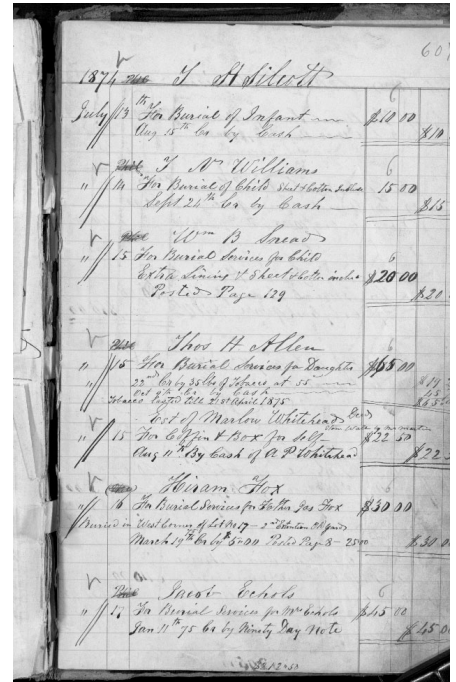 607
1874 T H Silcott
6
July 13th For Burial of Infant $10 00
Aug 15th Cr by Cash $10
T N Williams
6
" 14 For Burial of Child Sheet & Cotton Include 15 00
Sept 24th Cr by Cash $15
Wm B Snead
6
" 15 For Burial Services for Child
Extra Lining & Sheet & Cotton inclu $20 00
Posted Page 129 $20
Thos H Allen
" 15 For Burial Services for Daughter $65 00
22nd Cr by 35 lbs of Tobacco at 55
Oct 9th Cr by Cash
Tobacco 21st April 1875
Est of Marlow Whitehead
" 15 For Coffin & Box for Self $22 50
Aug 11th By Cash of A P Whitehead $22
Hiram Fox
6
" 16 For Burial Services for Father Jas Fox $30 00
Buried in West Corner of Lot No 17 2nd
March 19th Cr by 5.00 Posted Page 8 - 25 00 $30 0
Jacob Echols
6
" 17 For Burial Services for Mrs Echols $45 00
Jan 11th 75 Cr by Ninety Day Note $45 0